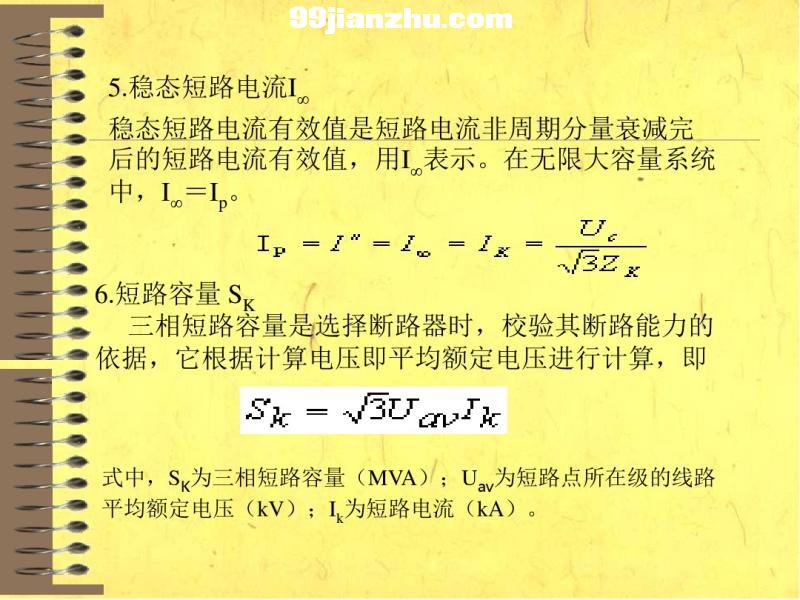 99jianzhu.com
5.稳态短路电流I∞
稳态短路电流有效值是短路电流非周期分量衰减完
后的短路电流有效值，用I∞表示。在无限大容量系统
中，I∞＝Ip。
I_P = I" = I_∞ = I_K = U_c / √3Z_K
6.短路容量 S_K
三相短路容量是选择断路器时，校验其断路能力的
依据，它根据计算电压即平均额定电压进行计算，即
S_k = √3U_av I_k
式中，S_K为三相短路容量（MVA）；U_av为短路点所在级的线路
平均额定电压（kV）；I_k为短路电流（kA）。